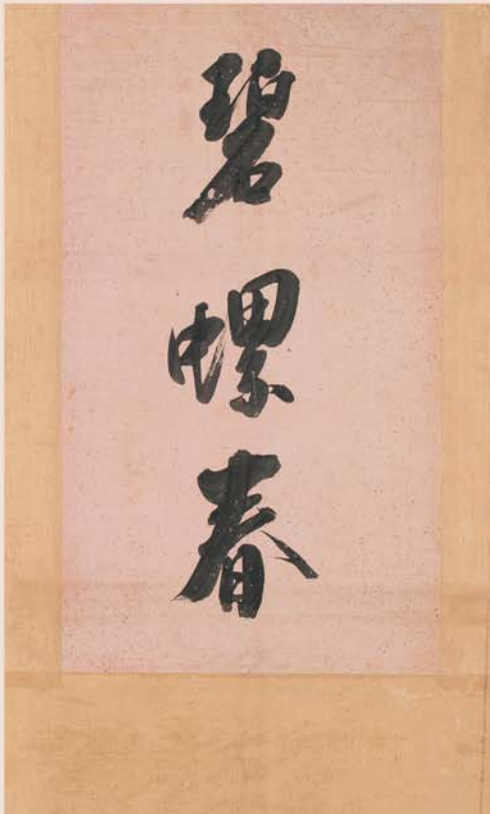 碧螺春